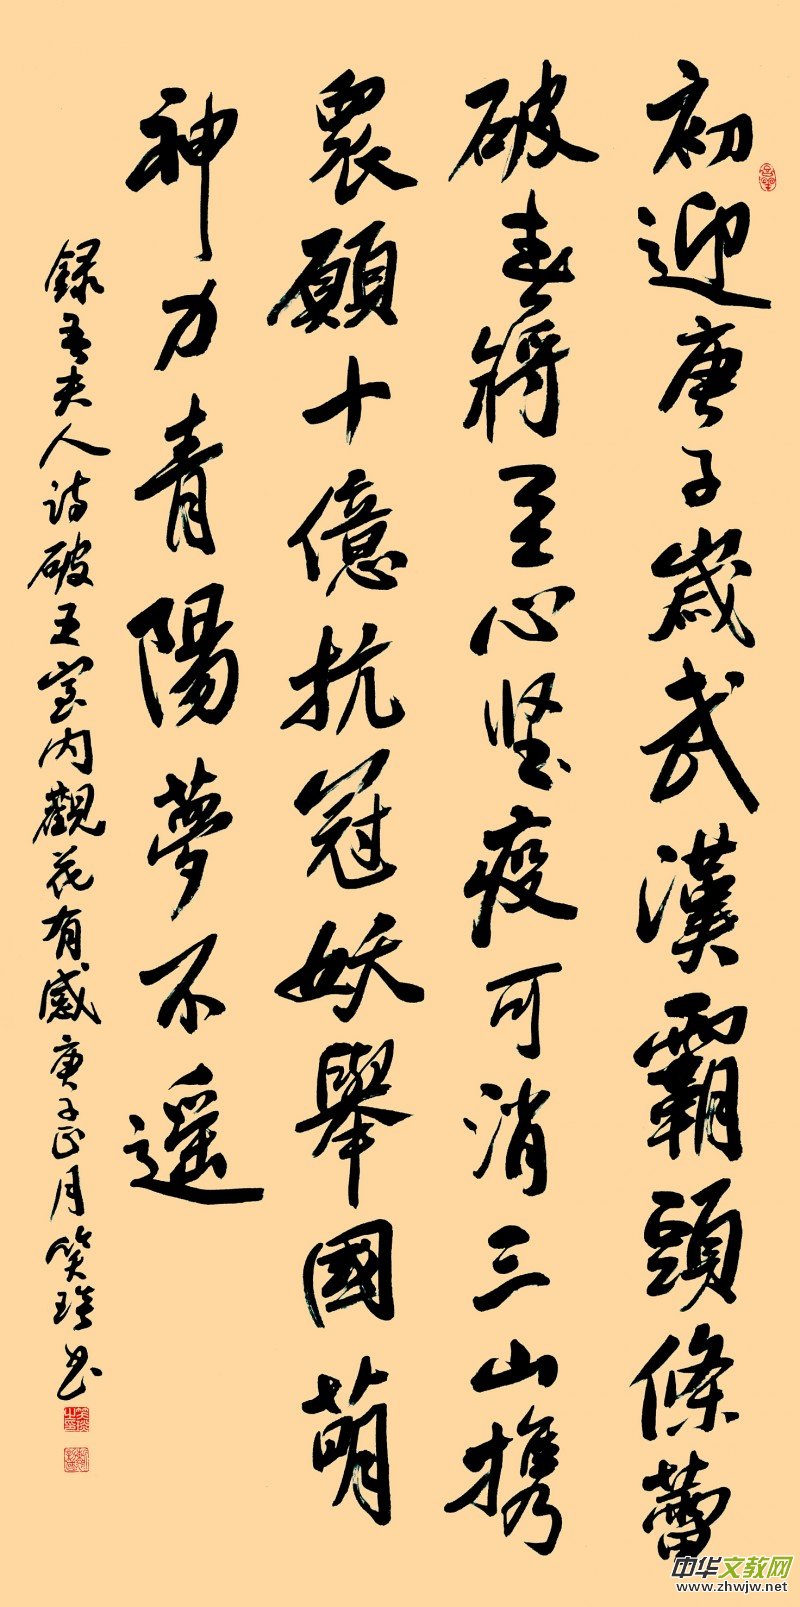 初迎庚子歲武漢霸頭條蕾
破春將至心坚疫可消三山携
眾願十億抗冠妖舉國萌
神力青陽夢不遥
録吾夫人诗破五室内觀花有感庚子正月笑璞书
中华文教网
www.zhwjw.net